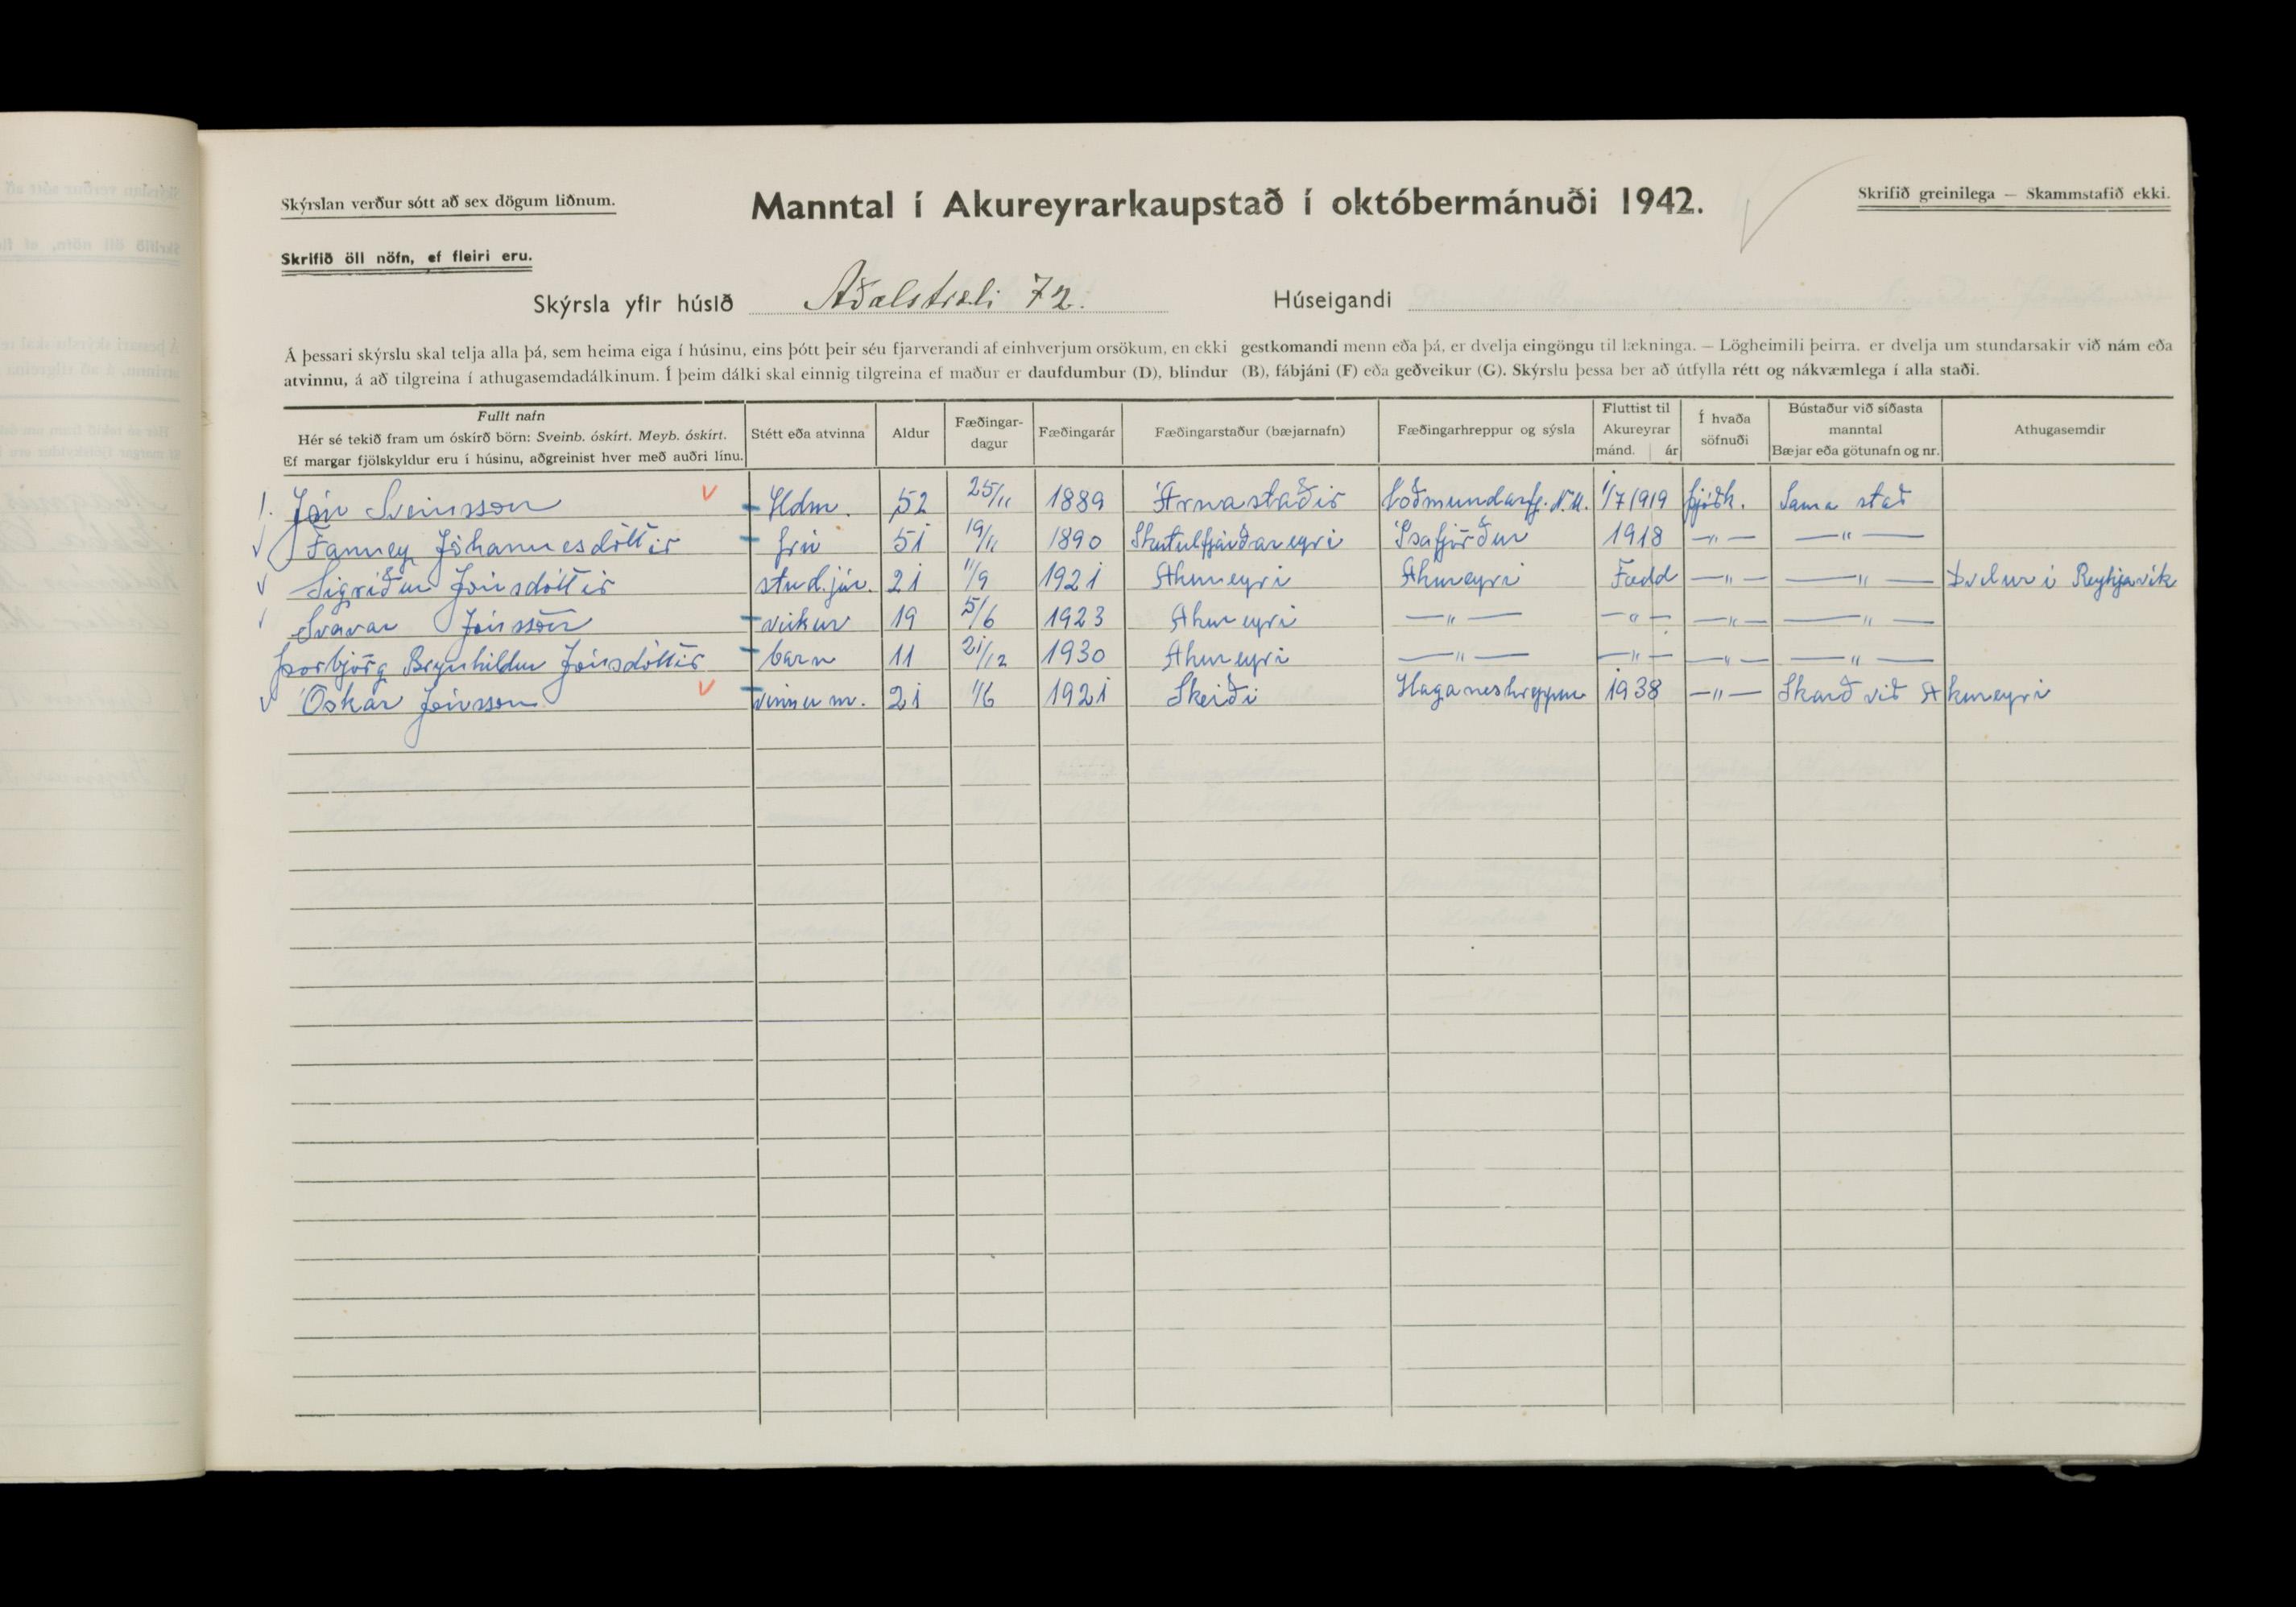 Skýrslan verður sótt að sex dögum liðnum.
Manntal í Akureyrarkaupstað í októbermánuði 1942.
Skrifið greinilega — Skammstafið ekki.
Skrifið öll nöfn, ef fleiri eru.
Skýrsla yfir húsið Aðalstræti 72. Húseigandi
Á þessari skýrslu skal telja alla þá, sem heima eiga í húsinu, eins þótt þeir séu fjarverandi af einhverjum orsökum, en ekki gestkomandi menn eða þá, er dvelja eingöngu til lækninga. — Lögheimili þeirra. er dvelja um stundarsakir við nám eða
atvinnu, á að tilgreina í athugasemdadálkinum. Í þeim dálki skal einnig tilgreina ef maður er daufdumbur (D), blindur (B), fábjáni (F) eða geðveikur (G). Skýrslu þessa ber að útfylla rétt og nákvæmlega í alla staði.
Fullt nafn
Hér sé tekið fram um óskírð börn: Sveinb. óskírt. Meyb. óskírt.
Ef margar fjölskyldur eru í húsinu, aðgreinist hver með auðri línu.
Stétt eða atvinna
Aldur
Fæðingar-
dagur
Fæðingarár
Fæðingarstaður (bæjarnafn)
Fæðingarhreppur og sýsla
Fluttist til
Akureyrar
mánd. ár
Í hvaða
söfnuði
Bústaður við síðasta
manntal
Bæjar eða götunafn og nr.
Athugasemdir
1. Jón Sveinsson Hdm. 52 25/11 1889 Árnastaðir Loðmundarfj. N.M. 1/7 1919 þjóðk. Sama stað
Fanney Jóhannesdóttir frú 51 19/11 1890 Skutulfjarðareyri Ísafjörður 1918 —"— —"—
Sigríður Jónsdóttir stud.jur. 21 11/9 1921 Akureyri Akureyri Fædd —"— —"— Dvelur í Reykjavík
Svavar Jónsson 19 5/6 1923 Akureyri —"— —"— —"— —"—
Þorbjörg Brynhildur Jónsdóttir barn 11 21/12 1930 Akureyri —"— —"— —"— —"—
Óskar Jónsson vinnum. 21 1/6 1921 Skeiði Haganeshreppur 1938 —"— Skarð við Akureyri